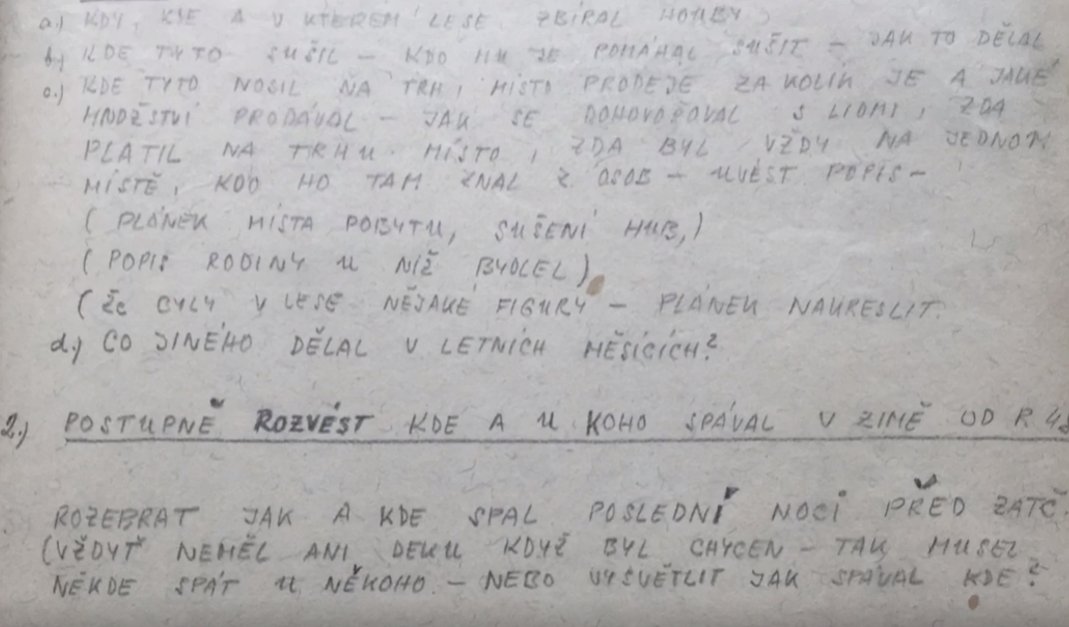 a.) KDY, KDE A V KTERÉM LESE ZBÍRAL HOUBY,
b.) KDE TYTO SUŠIL – KDO MU JE POMÁHAL SUŠIT – JAK TO DĚLAL
c.) KDE TYTO NOSIL NA TRH, MÍSTO PRODEJE ZA KOLIK JE A JAKÉ
MNOŽSTVÍ PRODÁVAL – JAK SE DOHOVOŘOVAL S LIDMI, ZDA
PLATIL NA TRHU MÍSTO, ZDA BYL VŽDY NA JEDNOM
MÍSTĚ, KDO HO TAM ZNAL Z OSOB – UVÉST POPIS –
( PLÁNEK MÍSTA POBYTU, SUŠENÍ HUB,)
( POPIS RODINY U NÍŽ BYDLEL )
( ŽE BYLY V LESE NĚJAKÉ FIGURY – PLÁNEK NAKRESLIT.
d.) CO JINÉHO DĚLAL V LETNÍCH MĚSÍCÍCH?
2.) POSTUPNĚ ROZVÉST KDE A U KOHO SPÁVAL V ZIMĚ OD R. 48
ROZEBRAT JAK A KDE SPAL POSLEDNÍ NOCI PŘED ZATČ.
(VŽDYŤ NEMĚL ANI DEKU KDYŽ BYL CHYCEN – TAK MUSEL
NĚKDE SPÁT U NĚKOHO – NEBO VYSVĚTLIT JAK SPÁVAL KDE?